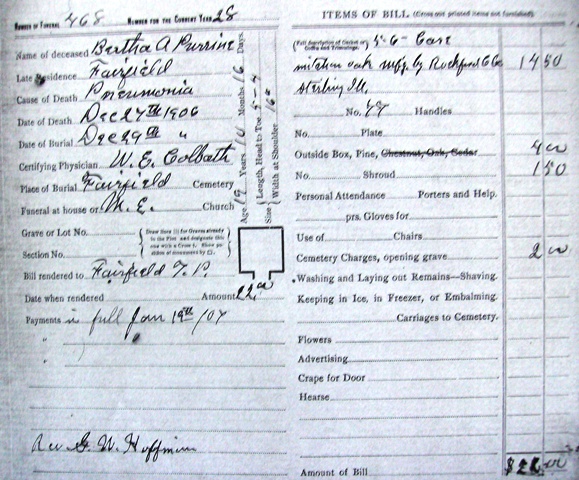 NUMBER OF FUNERAL 468 NUMBER FOR THE CURRENT YEAR 28
Name of deceased Bertha A Perrine
Late Residence Fairfield
Cause of Death Pneumonia
Date of Death Dec 27th 1906
Date of Burial Dec 29th "
Certifying Physician W. E. Colbath
Place of Burial Fairfield Cemetery
Funeral at house or M. E. Church
Grave or Lot No.
Section No.
Draw lines for Graves already in the Plot and designate this one with a Cross
Age Years Months 16 Days
Size Length, Head to Toe 5-4
Width at Shoulder 16
Bill rendered to Fairfield T. P.
Date when rendered Amount 22.00
Payments in full Jan 19th /07
"
"
Rev G. W. Hoffman
ITEMS OF BILL (Cross out printed items not furnished)
5-6- Case
oak mfg. by Rockford C Co 14 50
Sterling Ill.
No. 49 Handles
No. Plate
Outside Box, Pine, Chestnut, Oak, Cedar 4 00
No. Shroud 1 50
Personal Attendance Porters and Help.
prs. Gloves for
Use of Chairs
Cemetery Charges, opening grave 2 00
Washing and Laying out Remains—Shaving.
Keeping in Ice, in Freezer, or Embalming.
Carriages to Cemetery.
Flowers
Advertising
Crape for Door
Hearse
Amount of Bill $22 00